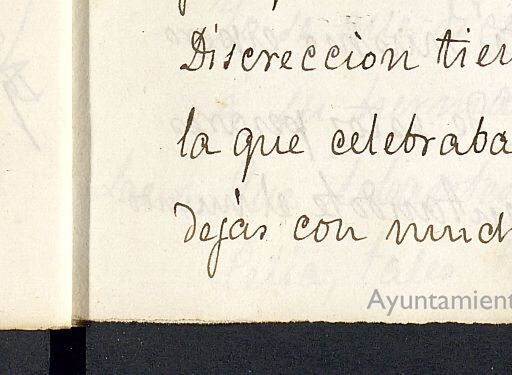 Discreccion tien
la que celebraba
dejás con much
Ayuntamient